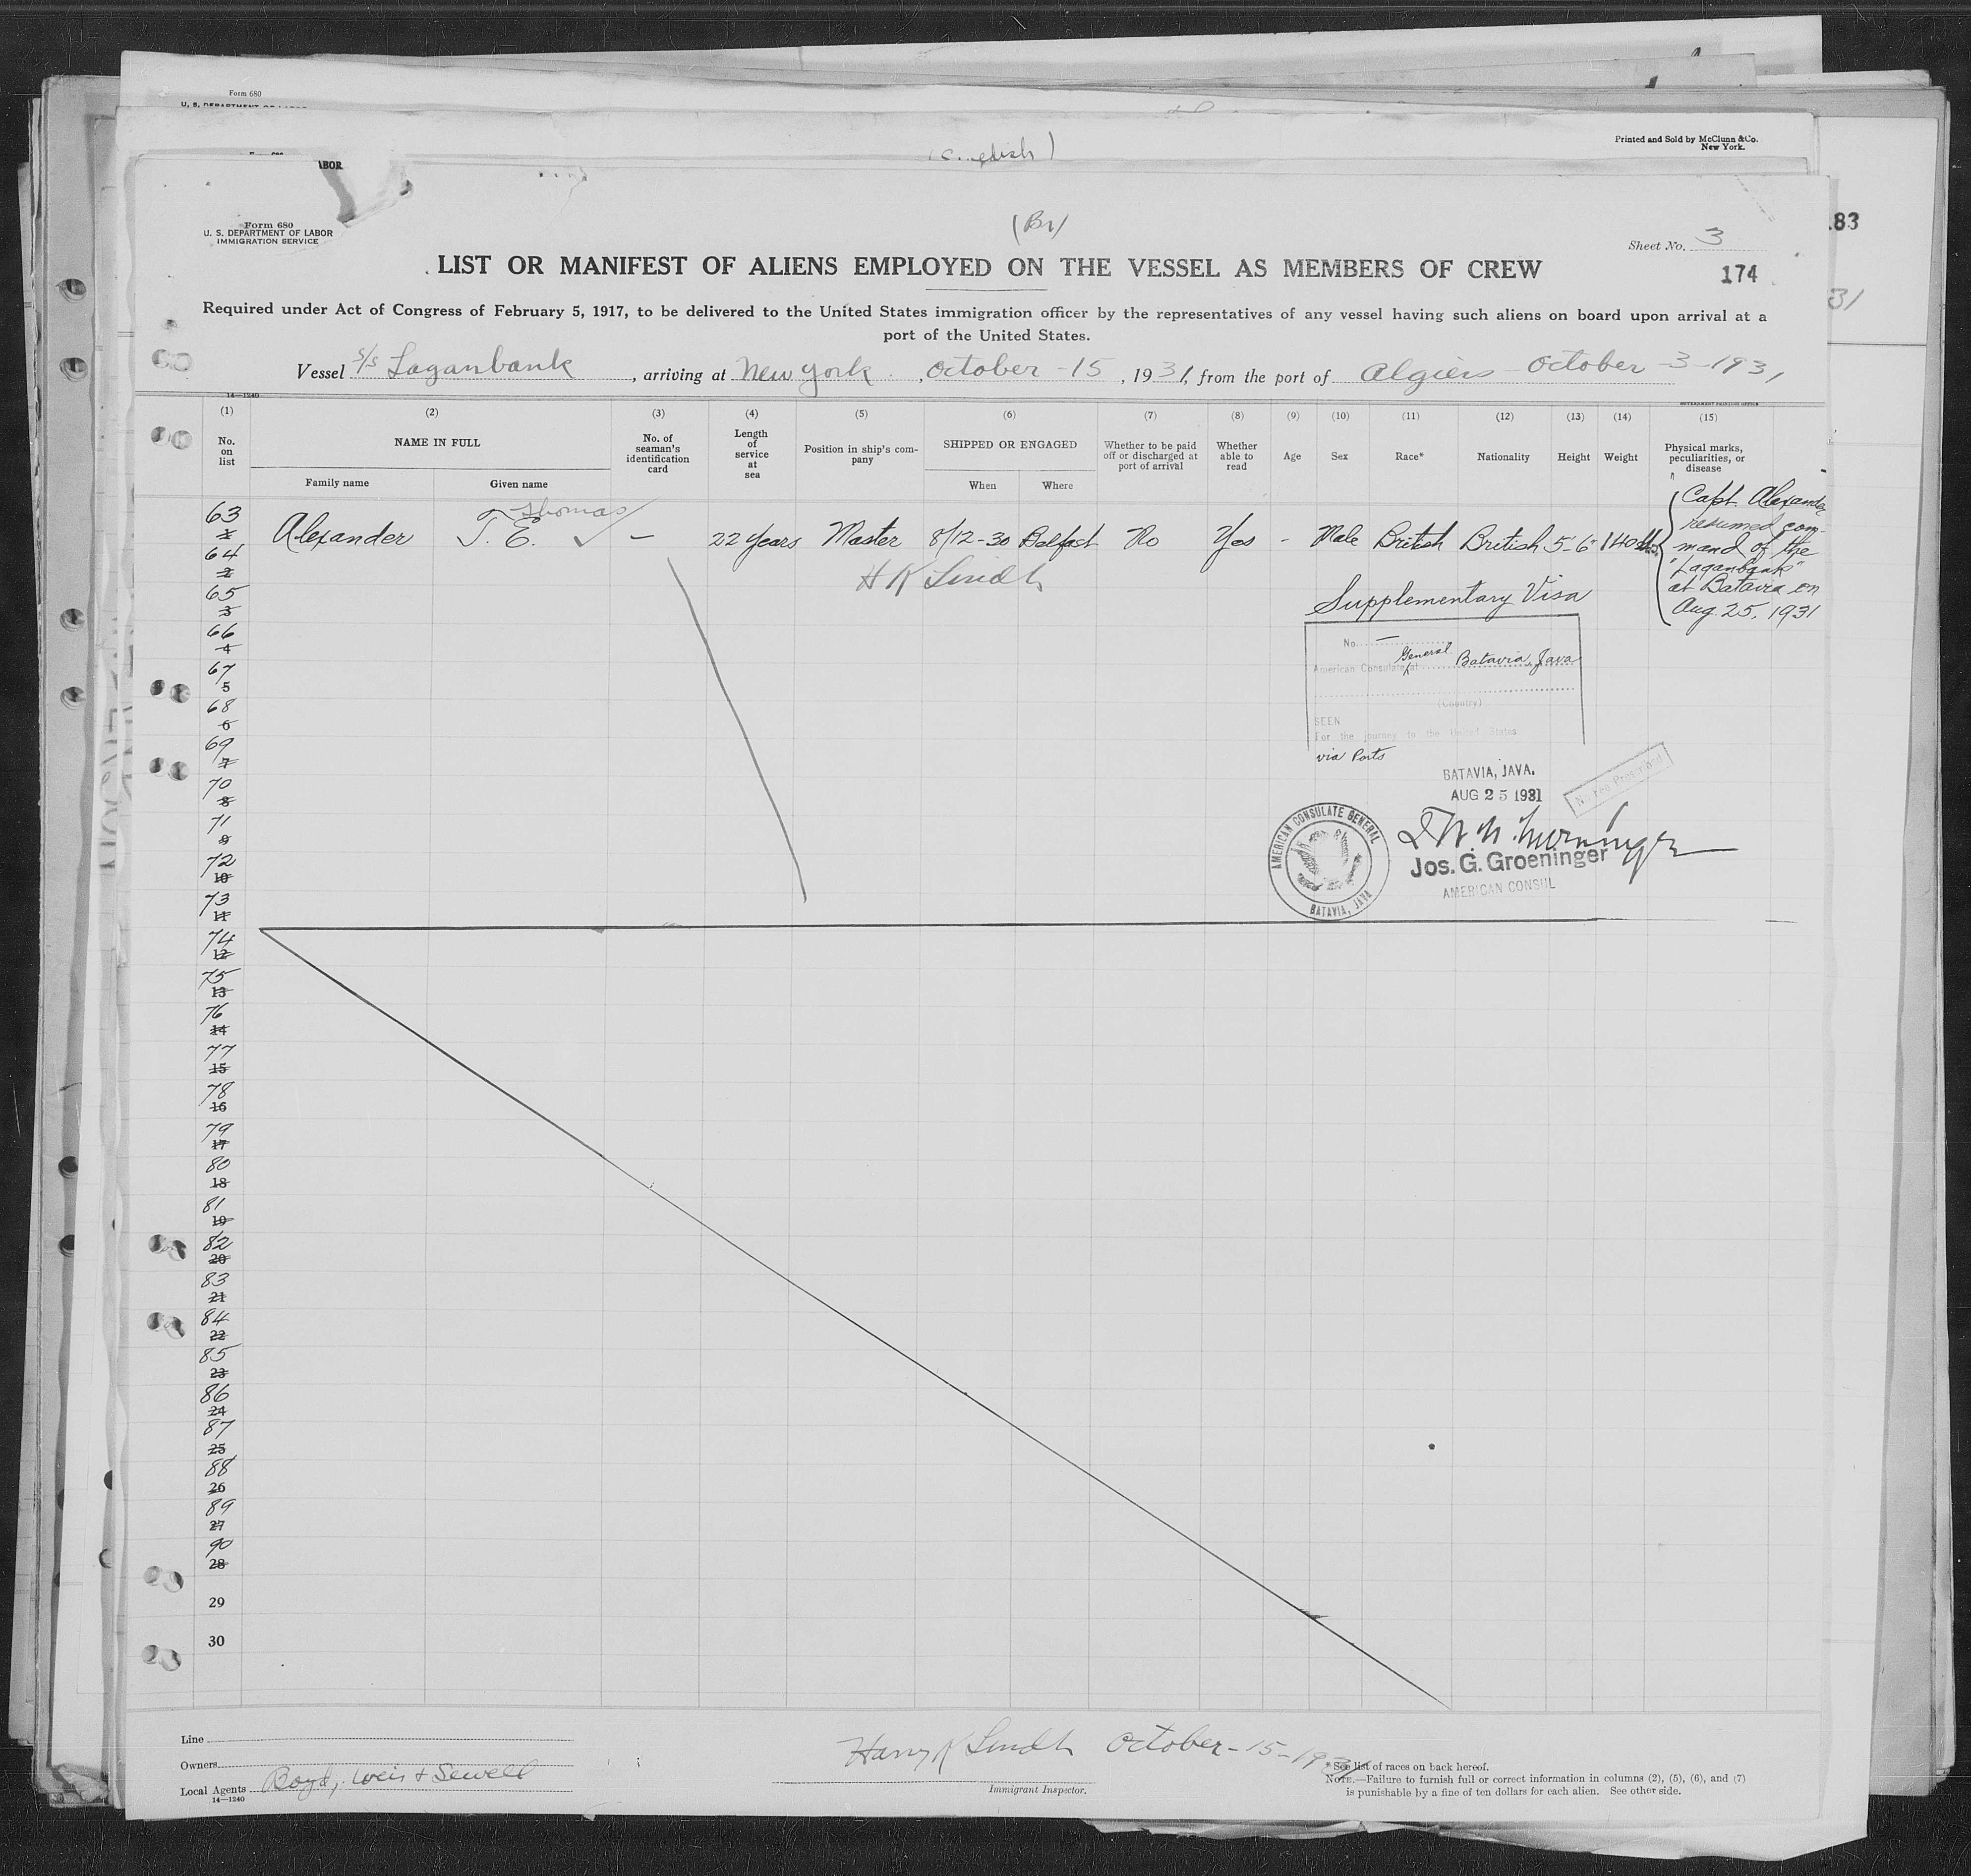 Form 680
Printed and Sold by McClunn & Co.
New York.
ABOR
Form 680
U. S. DEPARTMENT OF LABOR
IMMIGRATION SERVICE
(Br)
Sheet No. 3
LIST OR MANIFEST OF ALIENS EMPLOYED ON THE VESSEL AS MEMBERS OF CREW
174
Required under Act of Congress of February 5, 1917, to be delivered to the United States immigration officer by the representatives of any vessel having such aliens on board upon arrival at a
port of the United States.
Vessel S/S Laganbank, arriving at New York, October -15, 1931, from the port of Algiers - October -3-1931
14—1240
GOVERNMENT PRINTING OFFICE
(1) (2) (3) (4) (5) (6) (7) (8) (9) (10) (11) (12) (13) (14) (15)
No. on list
NAME IN FULL
Family name
Given name
No. of seaman's identification card
Length of service at sea
Position in ship's company
SHIPPED OR ENGAGED
When
Where
Whether to be paid off or discharged at port of arrival
Whether able to read
Age
Sex
Race*
Nationality
Height
Weight
Physical marks, peculiarities, or disease
Thomas
63 1 Alexander T. E. ✓ — 22 years Master 8/12-30 Belfast No Yes - Male British British 5-6" 140 lbs.
Capt. Alexander
resumed com-
mand of the
"Laganbank"
at Batavia on
Aug. 25, 1931
H K Lindh
64 2
65 3
66 4
67 5
68 6
69 7
70 8
71 9
72 10
73 11
Supplementary Visa
No. —
American Consulate General at Batavia, Java
(Country)
SEEN
For the journey to the United States
via Ports
BATAVIA, JAVA.
AUG 25 1931
No Fee Prescribed
AMERICAN CONSULATE GENERAL
BATAVIA, JAVA
Jos. G. Groeninger
AMERICAN CONSUL
74 12
75 13
76 14
77 15
78 16
79 17
80 18
81 19
82 20
83 21
84 22
85 23
86 24
87 25
88 26
89 27
90 28
29
30
Line
Owners
Local Agents Boyd, Weir & Sewell
14—1240
Harry K Lindh October-15-1931
Immigrant Inspector.
* See list of races on back hereof.
NOTE.—Failure to furnish full or correct information in columns (2), (5), (6), and (7)
is punishable by a fine of ten dollars for each alien. See other side.
83
31